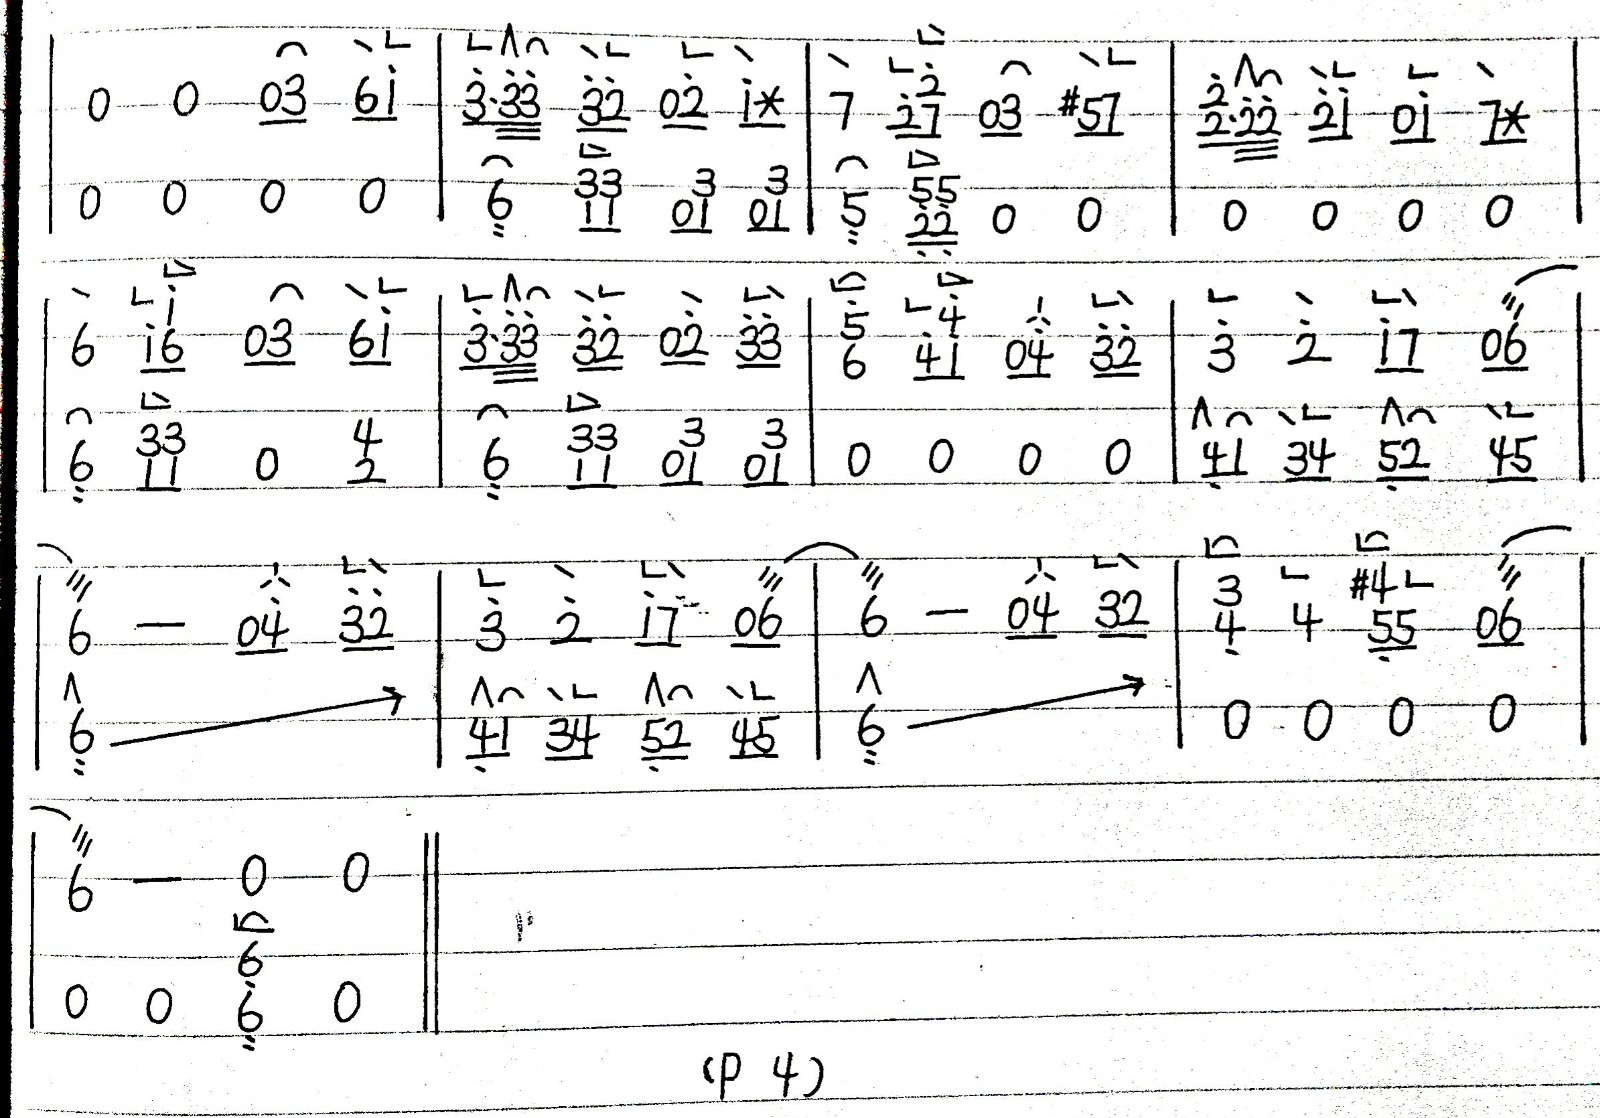 | 0 0 03 6i | 3·33 32 02 i* | 7 27 03 #57 | 2·22 21 0i 7* |
| 0 0 0 0 | 6 33 3 3 | 5 55 0 0 | 0 0 0 0 |
11 01 01 22
| 6 i6 03 6i | 3·33 32 02 33 | 5 4 04 32 | 3 2 i7 06 |
6 41
| 6 33 0 4 | 6 33 3 3 | 0 0 0 0 | 41 34 52 45 |
11 2 11 01 01
| 6 — 04 32 | 3 2 i7 06 | 6 — 04 32 | 3 4 #4 06 |
4 55
| 6 → | 41 34 52 45 | 6 → | 0 0 0 0 |
| 6 — 0 0 ||
6
| 0 0 6 0 ||
(P 4)